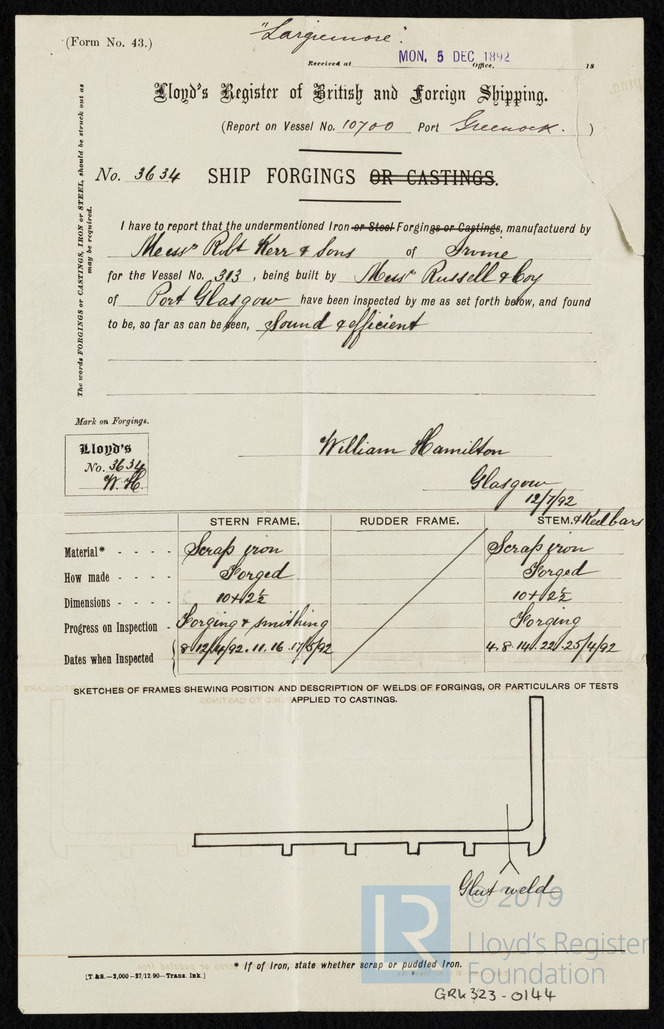 "Largiemore".
(Form No. 43.)
Received at MON. 5 DEC 1892 Office, 18
Lloyd's Register of British and Foreign Shipping.
(Report on Vessel No. 10700 Port Greenock. )
No. 3634 SHIP FORGINGS OR CASTINGS.
The words FORGINGS or CASTINGS, IRON or STEEL, should be struck out as
may be required.
I have to report that the undermentioned Iron or Steel Forgings or Castings, manufactuerd by
Messrs Robt Kerr & Sons of Irvine
for the Vessel No. 313, being built by Messrs Russell & Coy
of Port Glasgow have been inspected by me as set forth below, and found
to be, so far as can be seen, Sound & efficient
Mark on Forgings.
Lloyd's
No. 3634
W.H.
William Hamilton
Glasgow
12/7/92
STERN FRAME. RUDDER FRAME. STEM. & Keel bars
Material* - - - - Scrap iron Scrap iron
How made - - - - Forged Forged
Dimensions - - - - 10 x 2½ 10 x 2½
Progress on Inspection - Forging & smithing Forging
Dates when Inspected 8.12/4/92. 11. 16. 17/5/92 4. 8. 14. 22. 25/4/92
SKETCHES OF FRAMES SHEWING POSITION AND DESCRIPTION OF WELDS OF FORGINGS, OR PARTICULARS OF TESTS
APPLIED TO CASTINGS.
Glut weld
© 2019
LR
Lloyd's Register
Foundation
* If of Iron, state whether scrap or puddled Iron.
[T. & S.—2,000—27/12/90—Trans. Ink.]
GRK323-0144